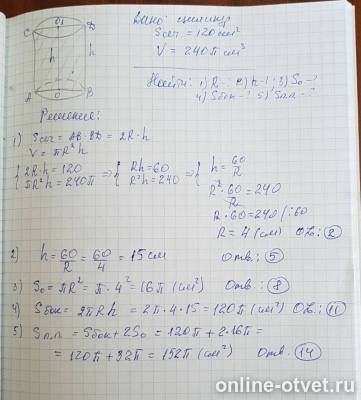 C O₁ D
h h
A O B
Дано: цилиндр
Sсеч. = 120 см²
V = 240π см³
Найти: 1) R-? 2) h-? 3) S₀-?
4) Sбок-? 5) Sп.п.-?
Решение:
1) Sсеч = AB·BD = 2R·h
V = πR²h
{2R·h = 120 ⇒ {Rh = 60 ⇒ {h = 60/R
{πR²h = 240π {R²h = 240 {R²·60/R = 240
R·60 = 240 /:60
R = 4 (см) Отв.: (2)
2) h = 60/R = 60/4 = 15 см Отв.: (5)
3) S₀ = πR² = π·4² = 16π (см²) Отв.: (8)
4) Sбок = 2πRh = 2π·4·15 = 120π (см²) Отв.: (11)
5) Sп.п. = Sбок + 2S₀ = 120π + 2·16π =
= 120π + 32π = 152π (см²) Отв. (14)
online-otvet.ru